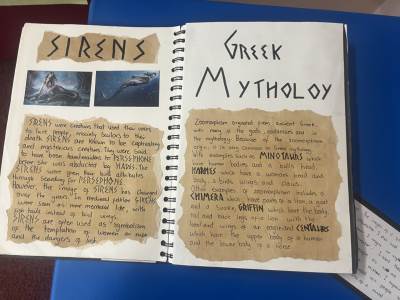 SIRENS
SIRENS were creatures that used their voices
to lure people, mainly sailors to their
death. SIRENS are known to be captivating
and mysterious creatures. They were said
to have been handmaidens to PERSEPHONE
before she was abducted by HADES. The
SIRENS were given their bird attributes
when searching for PERSEPHONE.
However, the image of SIRENS has changed
over the years. In medieval fiction SIRENS
were seen as more mermaid like, with
fish tails instead of bird wings.
SIRENS are often used as symbolism
of the temptation of women or
and the dangers of lust.
GREEK
MYTHOLOY
Zoomorphism origated from ancient Greek,
with many of the gods,
mythology. Because of the zoomorphism
origin, it is very common in Greek mythology
With examples such as MINOTAURS which
have human bodies and a bull's head,
HARPIES which have a womans head and
body, a birds wings and claws.
Other examples of zoomorphism includes a
CHIMERA which have parts of a lion, a goat
and a snake, GRIFFIN which have the body,
tail and back legs of a lion with the
head and wings of an eagle and CENTAURS
which have the upper body of a human
and the lower body of a horse.